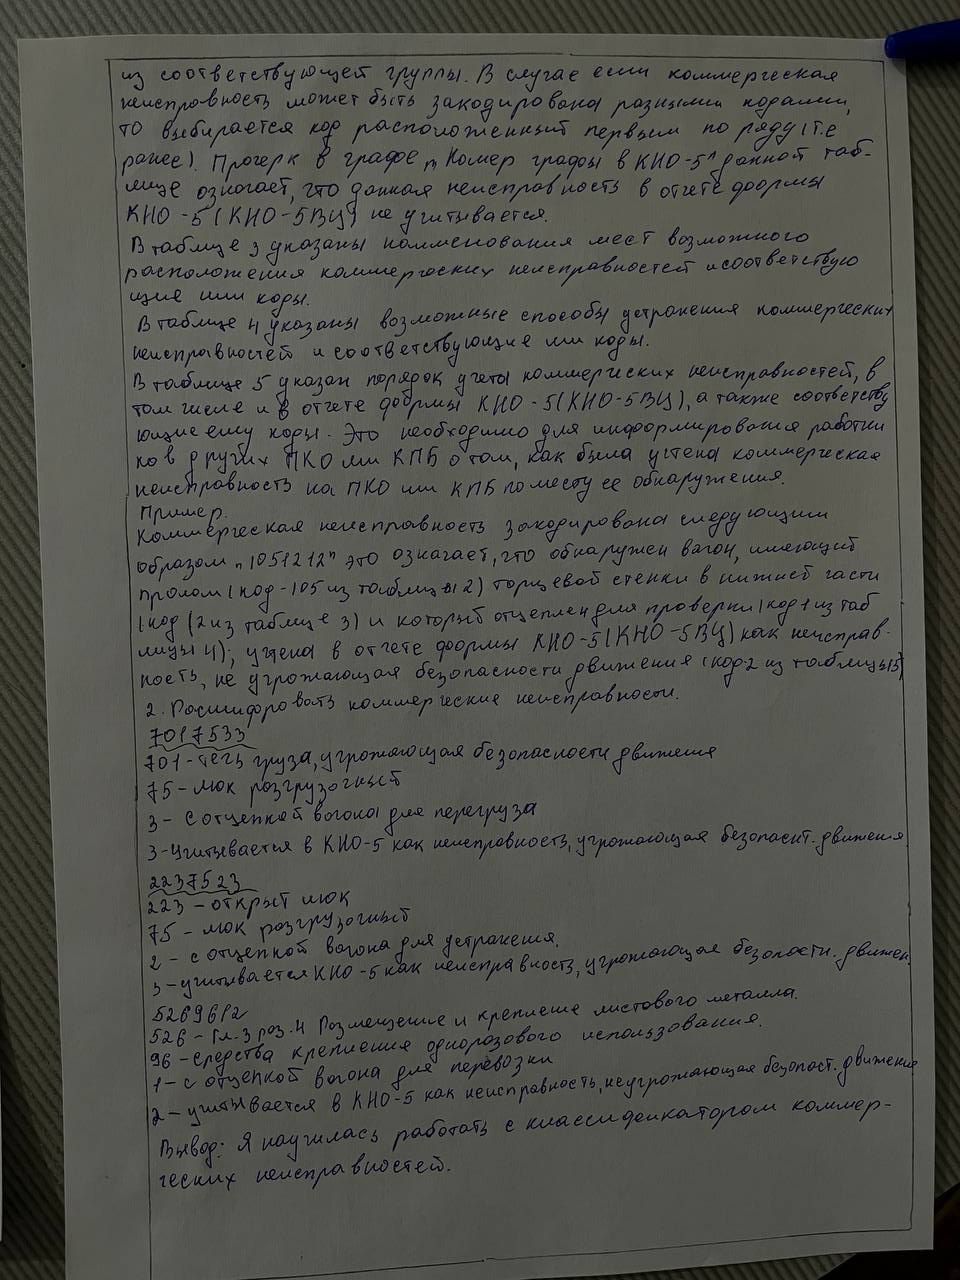 из соответствующей группы. В случае если коммерческая
неисправность может быть закодирована разными кодами,
то выбирается код расположенный первым по ряду (т.е
ранее). Прочерк в графе „Номер графы в КНО-5" данной таб-
лице означает, что данная неисправность в отчете формы
КНО-5 (КНО-5ВЦ) не учитывается.
В таблице 3 указаны наименования мест возможного
расположения коммерческих неисправностей и соответствую
щие им коды.
В таблице 4 указаны возможные способы устранения коммерческих
неисправностей и соответствующие им коды.
В таблице 5 указан порядок учета коммерческих неисправностей, в
том числе и в отчете формы КНО-5 (КНО-5ВЦ), а также соответству
ющие ему коды. Это необходимо для информирования работни
ков других ПКО или КПБ о том, как была учтена коммерческая
неисправность на ПКО или КПБ по месту ее обнаружения.
Пример.
Коммерческая неисправность закодирована следующим
образом „1051212" это означает, что обнаружен вагон, имеющий
пролом (код-105 из таблицы 2) торцевой стенки в нижней части
(код (2 из таблице 3) и который отцеплен для проверки (код 1 из таб
лицы 4); учтена в отчете формы КНО-5 (КНО-5ВЦ) как неисправ-
ность, не угрожающая безопасности движения (код-2 из таблицы 5)
2. Расшифровать коммерческие неисправности.
7017533
701-течь груза, угрожающая безопасности движения
75-люк разгрузочный
3- с отцепкой вагона для перегруза
3-Учитывается в КНО-5 как неисправность, угрожающая безопасн. движения
2237523
223-открыт люк
75-люк разгрузочный
2- с отцепкой вагона для устранения.
3-учитывается КНО-5 как неисправность, угрожающая безопасти. движен
5269612
526-Гл.3 раз.4 Размещение и крепление листового металла.
96-средства крепления одноразового использования.
1-с отцепкой вагона для перевозки
2-учитывается в КНО-5 как неисправность, неугрожающая безопаст. движение
Вывод: Я научилась работать с классификатором коммер-
ческих неисправностей.